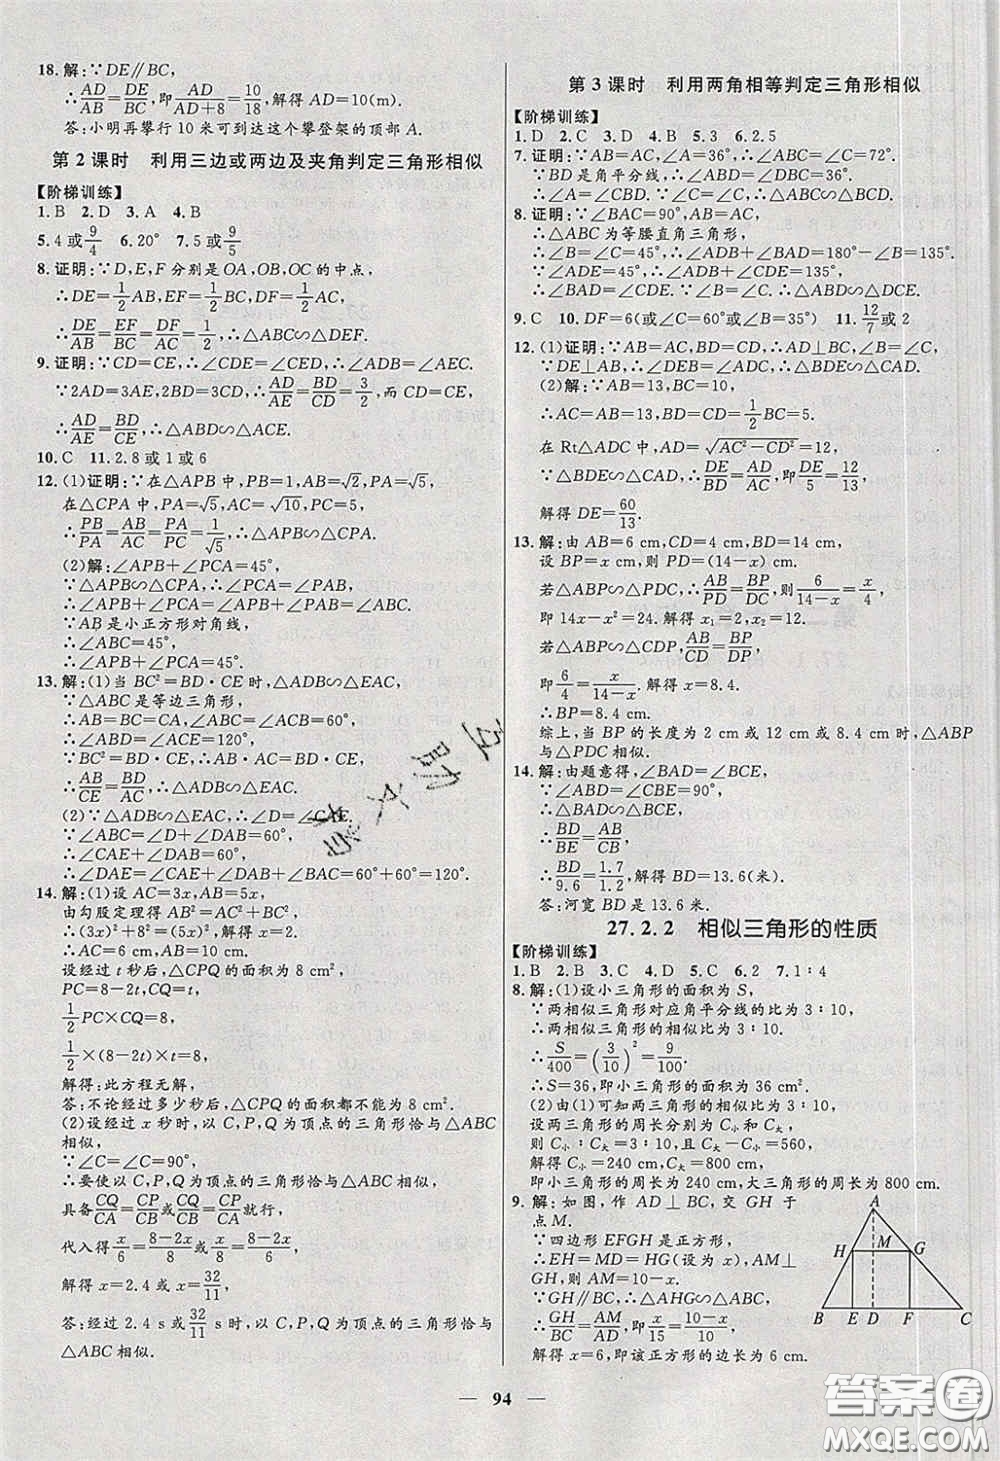 18. 解:∵DE∥BC,
∴AD/AB=DE/BC,即AD/(AD+8)=18/10,解得 AD=10(m).
答:小明再攀行 10 米可到达这个攀登架的顶部 A.
第 2 课时 利用三边或两边及夹角判定三角形相似
【阶梯训练】
1. B 2. D 3. A 4. B
5. 4 或 9/4 6. 20° 7. 5 或 9/5
8. 证明:∵D,E,F 分别是 OA,OB,OC 的中点,
∴DE=1/2AB,EF=1/2BC,DF=1/2AC,
∴DE/AB=EF/BC=DF/AC=1/2,∴△ABC∽△DEF.
9. 证明:∵CD=CE,∴∠CDE=∠CED,∴∠ADB=∠AEC.
∵2AD=3AE,2BD=3CD,∴AD/AE=BD/CD=3/2,而 CD=CE,
∴AD/AE=BD/CE,∴△ABD∽△ACE.
10. C 11. 2.8 或 1 或 6
12. (1)证明:∵在△APB 中,PB=1,AB=√2,PA=√5,
在△CPA 中,PA=√5,AC=√10,PC=5,
∴PB/PA=AB/AC=PA/PC=1/√5,∴△APB∽△CPA.
(2)解:∠APB+∠PCA=45°,
∵△APB∽△CPA,∴∠PCA=∠PAB,
∴∠APB+∠PCA=∠APB+∠PAB=∠ABC,
∵AB 是小正方形对角线,
∴∠ABC=45°,
∴∠APB+∠PCA=45°.
13. 解:(1)当 BC²=BD·CE 时,△ADB∽△EAC,
∵△ABC是等边三角形,
∴AB=BC=CA,∠ABC=∠ACB=60°,
∴∠ABD=∠ACE=120°.
∵BC²=BD·CE,∴AB·AC=BD·CE,
∴AB/CE=BD/AC,∴△ADB∽△EAC.
(2)∵△ADB∽△EAC,∴∠D=∠CAE.
∵∠ABC=∠D+∠DAB=60°,
∴∠CAE+∠DAB=60°,
∴∠DAE=∠CAE+∠DAB+∠BAC=60°+60°=120°.
14. 解:(1)设 AC=3x,AB=5x,
由勾股定理得 AB²=AC²+BC²,
∴(3x)²+8²=(5x)²,解得 x=2,
∴AC=6 cm,AB=10 cm.
设经过 t 秒后,△CPQ 的面积为 8 cm²,
PC=8-2t,CQ=t,
1/2PC×CQ=8,
1/2×(8-2t)×t=8,
解得:此方程无解,
答:不论经过多少秒后,△CPQ 的面积都不能为 8 cm².
(2)设经过 x 秒时,以 C,P,Q 为顶点的三角形恰与△ABC
相似,
∵∠C=∠C=90°,
∴要使以 C,P,Q 为顶点的三角形恰与△ABC 相似,
具备CQ/CA=CP/CB或CQ/CB=CP/CA就行,
代入得x/6=(8-2x)/8或x/8=(8-2x)/6,
解得 x=2.4 或 x=32/11,
答:经过 2.4 s 或32/11 s 时,以 C,P,Q 为顶点的三角形恰与
△ABC 相似.
第 3 课时 利用两角相等判定三角形相似
【阶梯训练】
1. D 2. C 3. A 4. B 5. 3 6. 2.5
7. 证明:∵AB=AC,∠A=36°,∴∠ABC=∠C=72°.
∵BD 是角平分线,∴∠ABD=∠CBD=36°,
∴∠A=∠CBD. ∵∠C=∠C,∴△ABC∽△BDC.
8. 证明:∵∠BAC=90°,AB=AC,
∴△ABC 为等腰直角三角形,
∴∠B=∠C=45°,∴∠ADB+∠BAD=180°-∠B=135°.
∵∠ADE=45°,∴∠ADB+∠CDE=135°,
∴∠BAD=∠CDE. ∵∠B=∠C,∴△ABD∽△DCE.
9. C 10. DF=6(或∠C=60°或∠B=35°) 11. 12/7或 2
12. (1)证明:∵AB=AC,BD=CD,∴AD⊥BC,∠B=∠C,
∵DE⊥AB,∴∠DEB=∠ADC,∴△BDE∽△CAD.
(2)解:∵AB=13,BC=10,
∴AC=AB=13,BD=CD=1/2BC=5.
在 Rt△ADC 中,AD=√(AC²-CD²)=12,
∵△BDE∽△CAD,∴DE/AD=BD/AC,即DE/5=12/13,
解得 DE=60/13.
13. 解:由 AB=6 cm,CD=4 cm,BD=14 cm,
设 BP=x cm,则 PD=(14-x) cm,
若△ABP∽△PDC,∴AB/PD=BP/DC,则6/(14-x)=x/4,
即 14x-x²=24. 解得 x₁=2,x₂=12.
若△ABP∽△CDP,AB/CD=BP/DP,
即6/4=x/(14-x). 解得 x=8.4.
∴BP=8.4 cm.
综上,当 BP 的长度为 2 cm 或 12 cm 或 8.4 cm 时,△ABP
与△PDC 相似.
14. 解:由题意得,∠BAD=∠BCE,
∵∠ABD=∠CBE=90°,
∴△BAD∽△BCE,
∴BD/BE=AB/CB,
∴BD/9.6=1.7/1.2,解得 BD=13.6(米).
答:河宽 BD 是 13.6 米.
27.2.2 相似三角形的性质
【阶梯训练】
1. B 2. B 3. C 4. D 5. C 6. 2 7. 1∶4
8. 解:(1)设小三角形的面积为 S,
∵两相似三角形对应角平分线的比为 3∶10,
∴两相似三角形的相似比为 3∶10,
∴S/400=(3/10)²=9/100,
∴S=36,即小三角形的面积为 36 cm².
(2)由(1)可知两三角形的相似比为 3∶10,
设两三角形的周长分别为 C小和 C大,
则 C小∶C大=3∶10,且 C大-C小=560,
解得 C小=240 cm,C大=800 cm,
即小三角形的周长为 240 cm,大三角形的周长为 800 cm.
9. 解:如图,作 AD⊥BC,交 GH 于
点 M.
∵四边形 EFGH 是正方形,
∴EH=MD=HG(设为 x),AM⊥
GH,则 AM=10-x.
∵GH∥BC,∴△AHG∽△ABC,
∴GH/BC=AM/AD,即x/15=(10-x)/10,
解得 x=6,即该正方形的边长为 6 cm.
A
H M G
B E D F C
94
答案圈
MXQE.COM